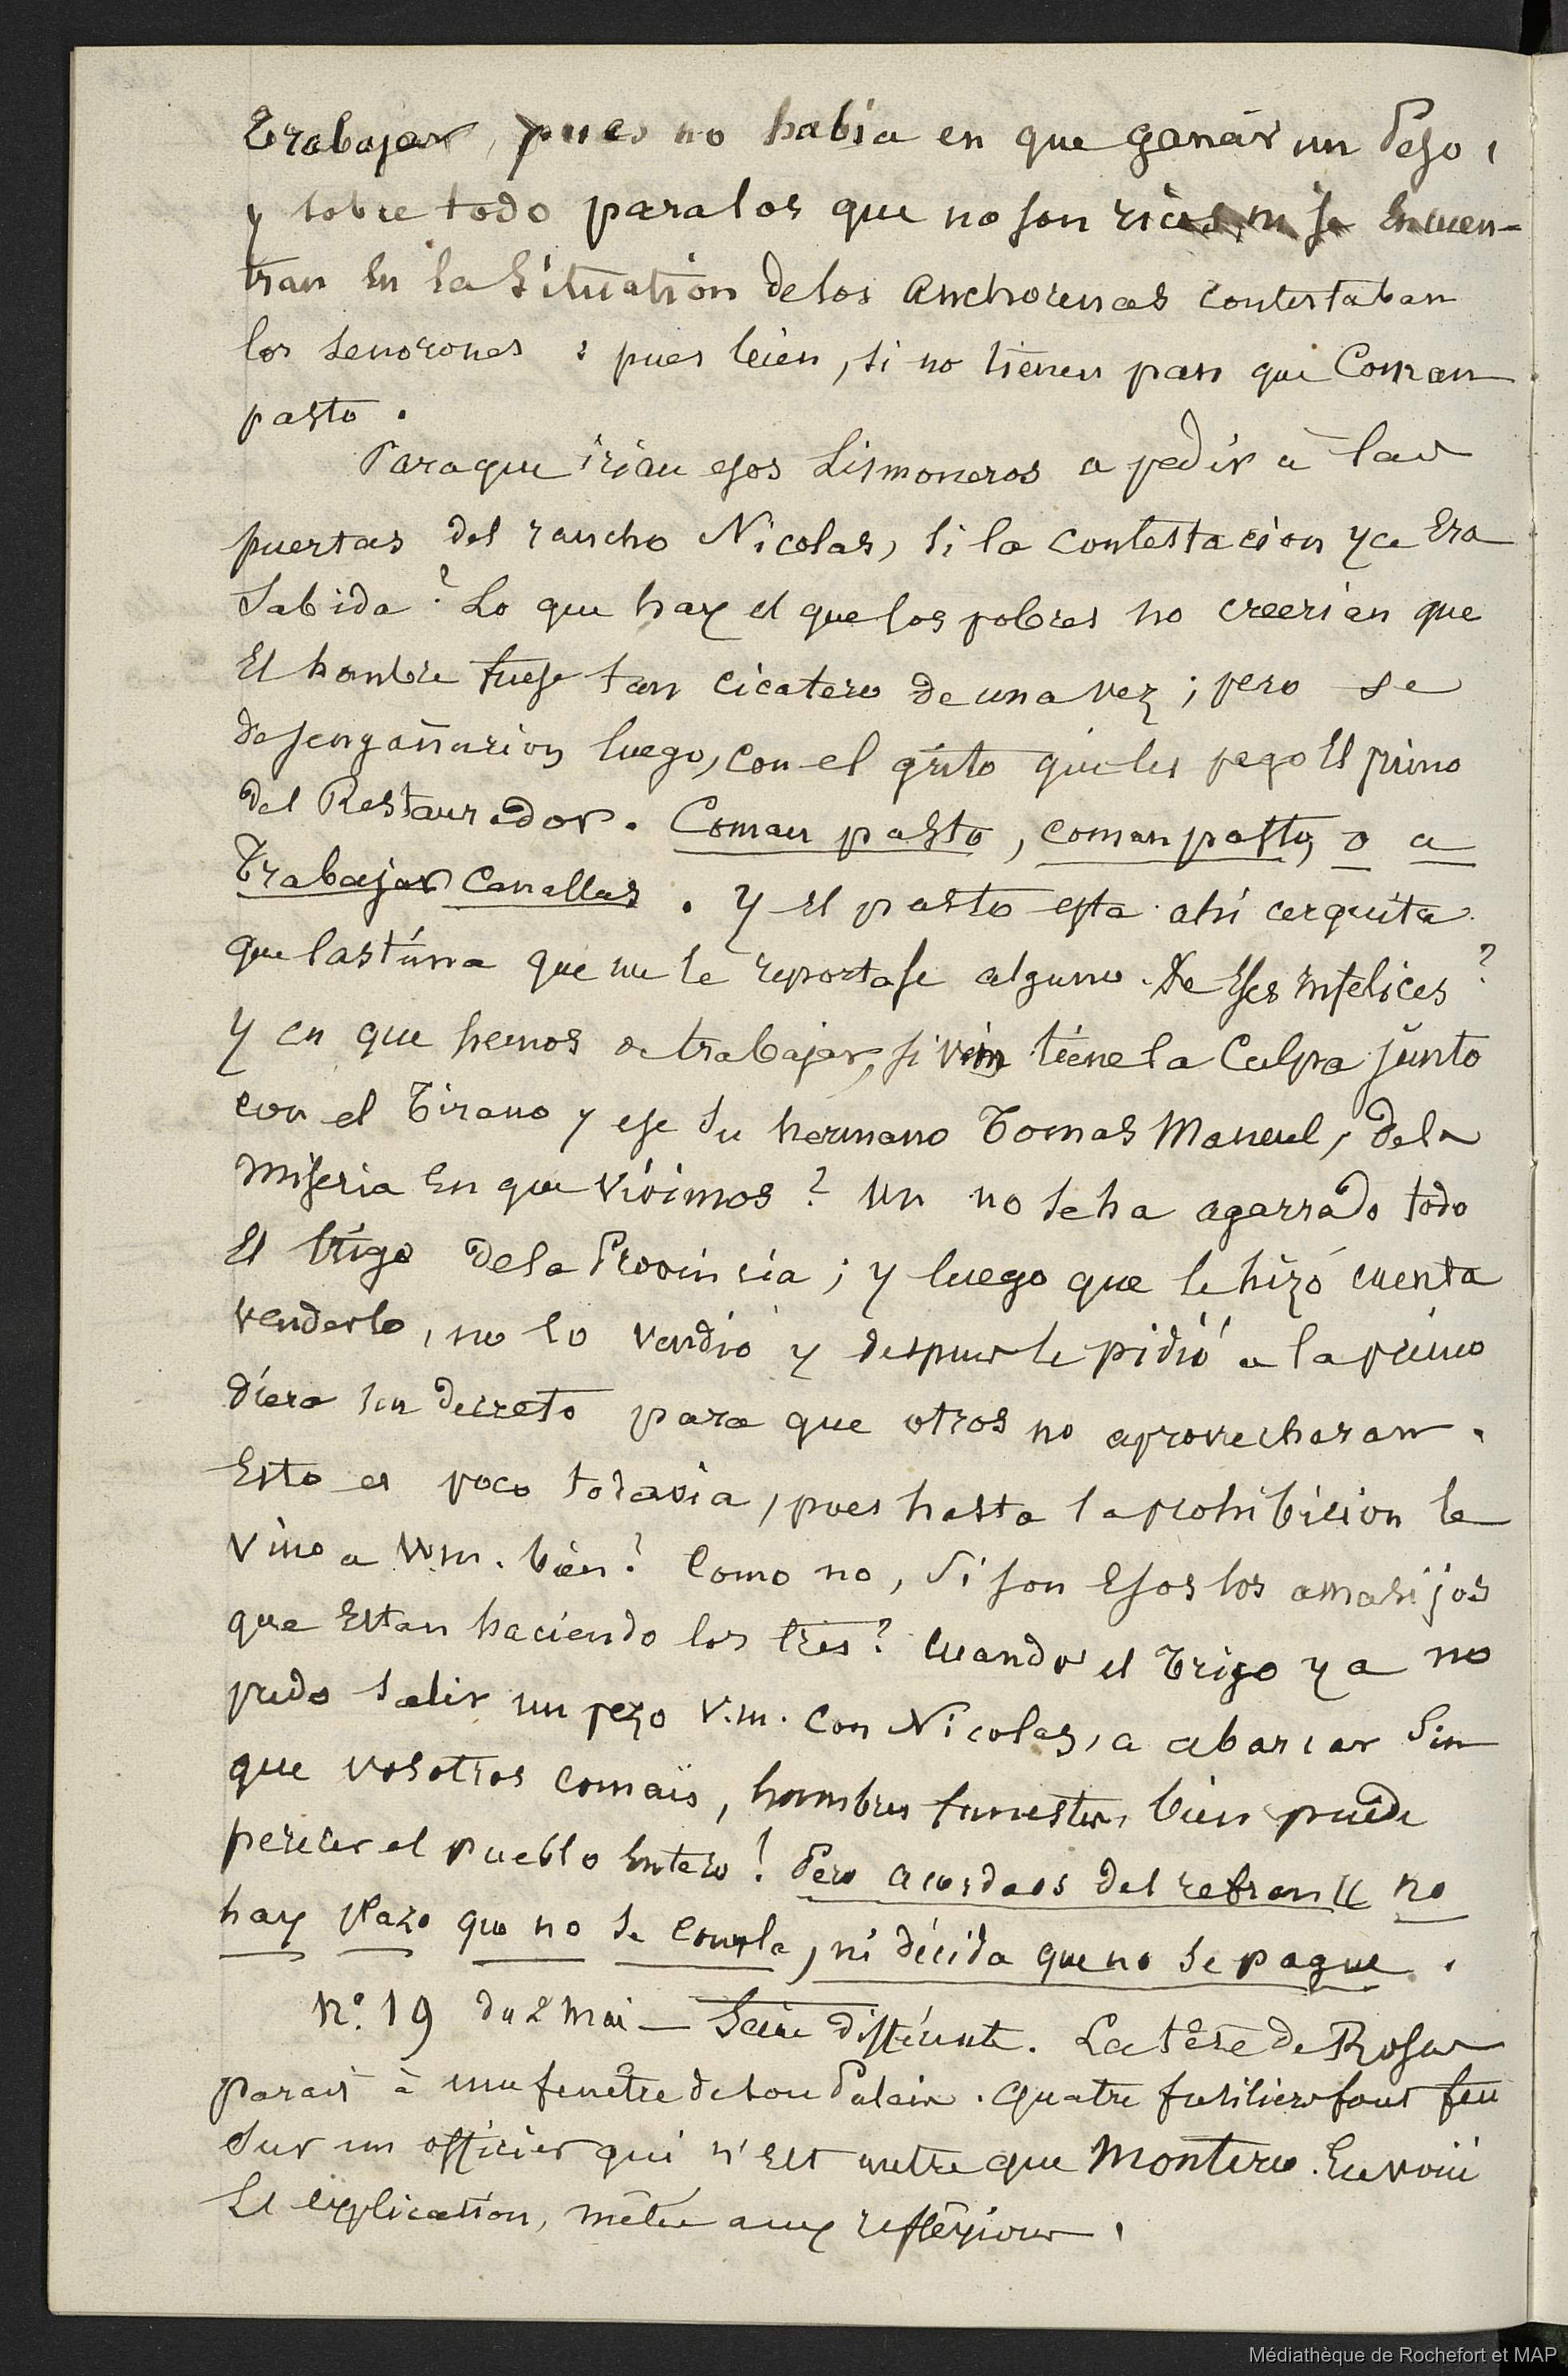 Trabajar, pues no habia en que ganár un Peso,
y sobre todo para los que no son ricos, ni se encuen-
tran En la Situation de los Anchorenas contestaban
los senorones : pues bien, si no tienen pan qui Coman
pasto.
Paraque irian esos Lismoneros a pedir a las
puertas del rancho Nicolas, si la contestacion ya Era
Sabida ? Lo que hay el que los pobres no creerian que
El hombre fuese tan cicatero de una vez ; pero se
desengañarion luego, con el grito que les pego El primo
del Restaurador. Coman pasto, coman pasto, o a
Trabajar Canallas. Y El pasto esta ahi cerquita
que lastima que no le reportase alguno. De Esos infelices ?
Y en que hemos de trabajar, si vm tiene la Culpa junto
con el Tirano y ese Su hermano Tomas Manuel, de la
Miseria En que vivimos ? Vm no se ha agarrado todo
El trigo de la Provincia ; y luego que le hizó cuenta
venderlo, no lo vendió y despues le pidió a la primo
diera un decreto para que otros no aprovecharan.
Esto es poco todavia, pues hasta la prohibicion le
vino a Vm. bien ? Como no, Si son Esos los amasijos
que Estan haciendo los tres ? Cuando el Trigo ya no
pudo Salir un pezo V.m. con Nicolas, a abarcar Sin
que vosotros comaïs, hombres funestos, bien puede
perecer el Pueblo Entero ! Pero acordaos del refran « no
hay Plazo que no se Cumpla, ni décida que no se pague.
Nº. 19 du 2 Mai — Scène différente. La tête de Rosas
paraît à une fenêtre de son Palais. Quatre fusiliers font feu
sur un officier qui n'Est autre que Montero. En voici
L'explication, mêlée aux réflexions.
Médiathèque de Rochefort et MAP